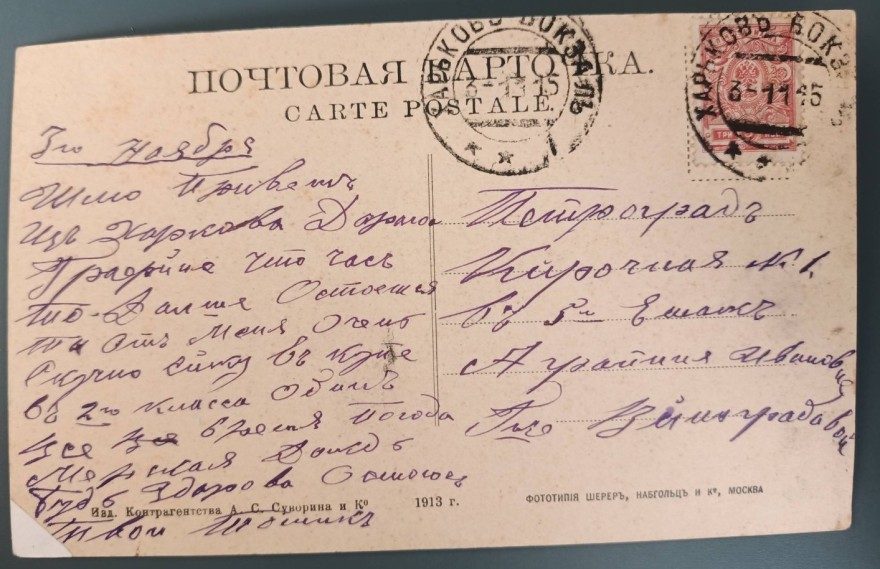 ПОЧТОВАЯ КАРТОЧКА.
CARTE POSTALE.
ХАРЬКОВЪ ВОКЗАЛЪ
3-11 15
ХАРЬКОВЪ ВОКЗ
3-11 15
ТРИ
3го Ноября
Шлю Приветъ
Изъ Харкова Дорогая
что часъ
то Далше Остаешся
ты Отъ Меня Очень
Скучно Сижу въ купе
въ 2го класса Одинъ
Все время Погода
Мерская Дождъ
Будъ Здорова Остаюсь
Твой
Петроградъ
Кирочная № 1.
въ 5м Етажъ
Ивановне
Гже Виноградовой
Изд. Контрагентства А. С. Суворина и Ко 1913 г.
ФОТОТИПІЯ ШЕРЕРЪ, НАБГОЛЬЦЪ И Ко, МОСКВА